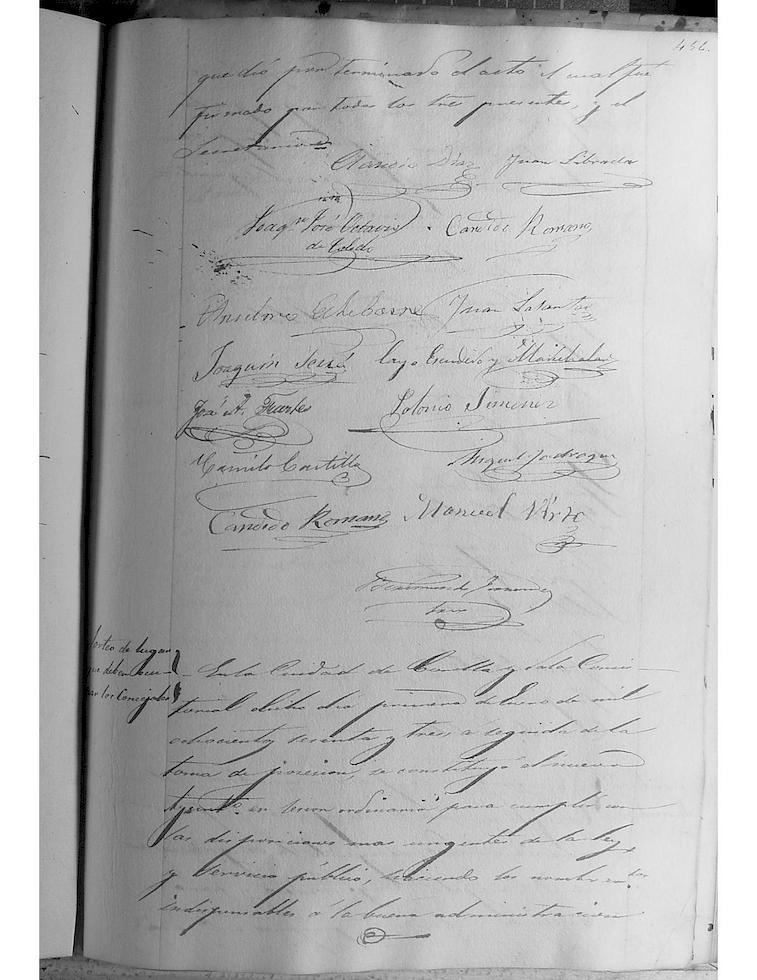 456.
que dió por terminado el acto el cual fue
firmado por todos los tres presente, y el
Secretario
Díaz Juan Librada
Joaqn José Octavio Candido Romano
de Toledo
Echebarne Juan
Joaquin layo y
José A. Fuartes Polonio Jimenez
Camilo Castilla Miguel
Candido Romano Manuel
Sorteo de lugares
que deben ocu-
par los Concejales
En la Ciudad de Corella y sala Consis-
torial dicho dia primero de Enero de mil
ochocientos sesenta y tres a seguida de la
toma de posesion, se constituyó el nuevo
Ayuntº en sesion ordinaria para cumplir con
las disposiciones mas urgentes de la ley
y servicio público, haciendo los nombramtos
indispensables á la buena administracion